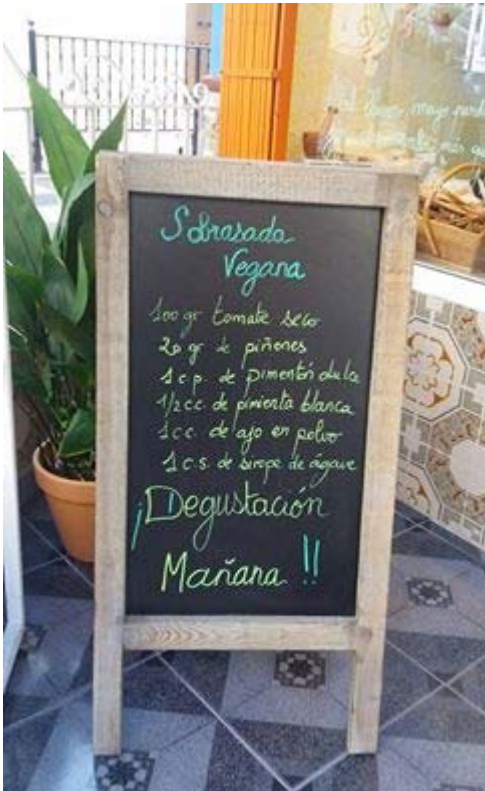 Sobrasada
Vegana
100 gr tomate seco
20 gr de piñones
1 c.p. de pimentón dulce
1/2 c.c. de pimienta blanca
1 c.c. de ajo en polvo
1 c.s. de sirope de ágave
¡Degustación
Mañana!!